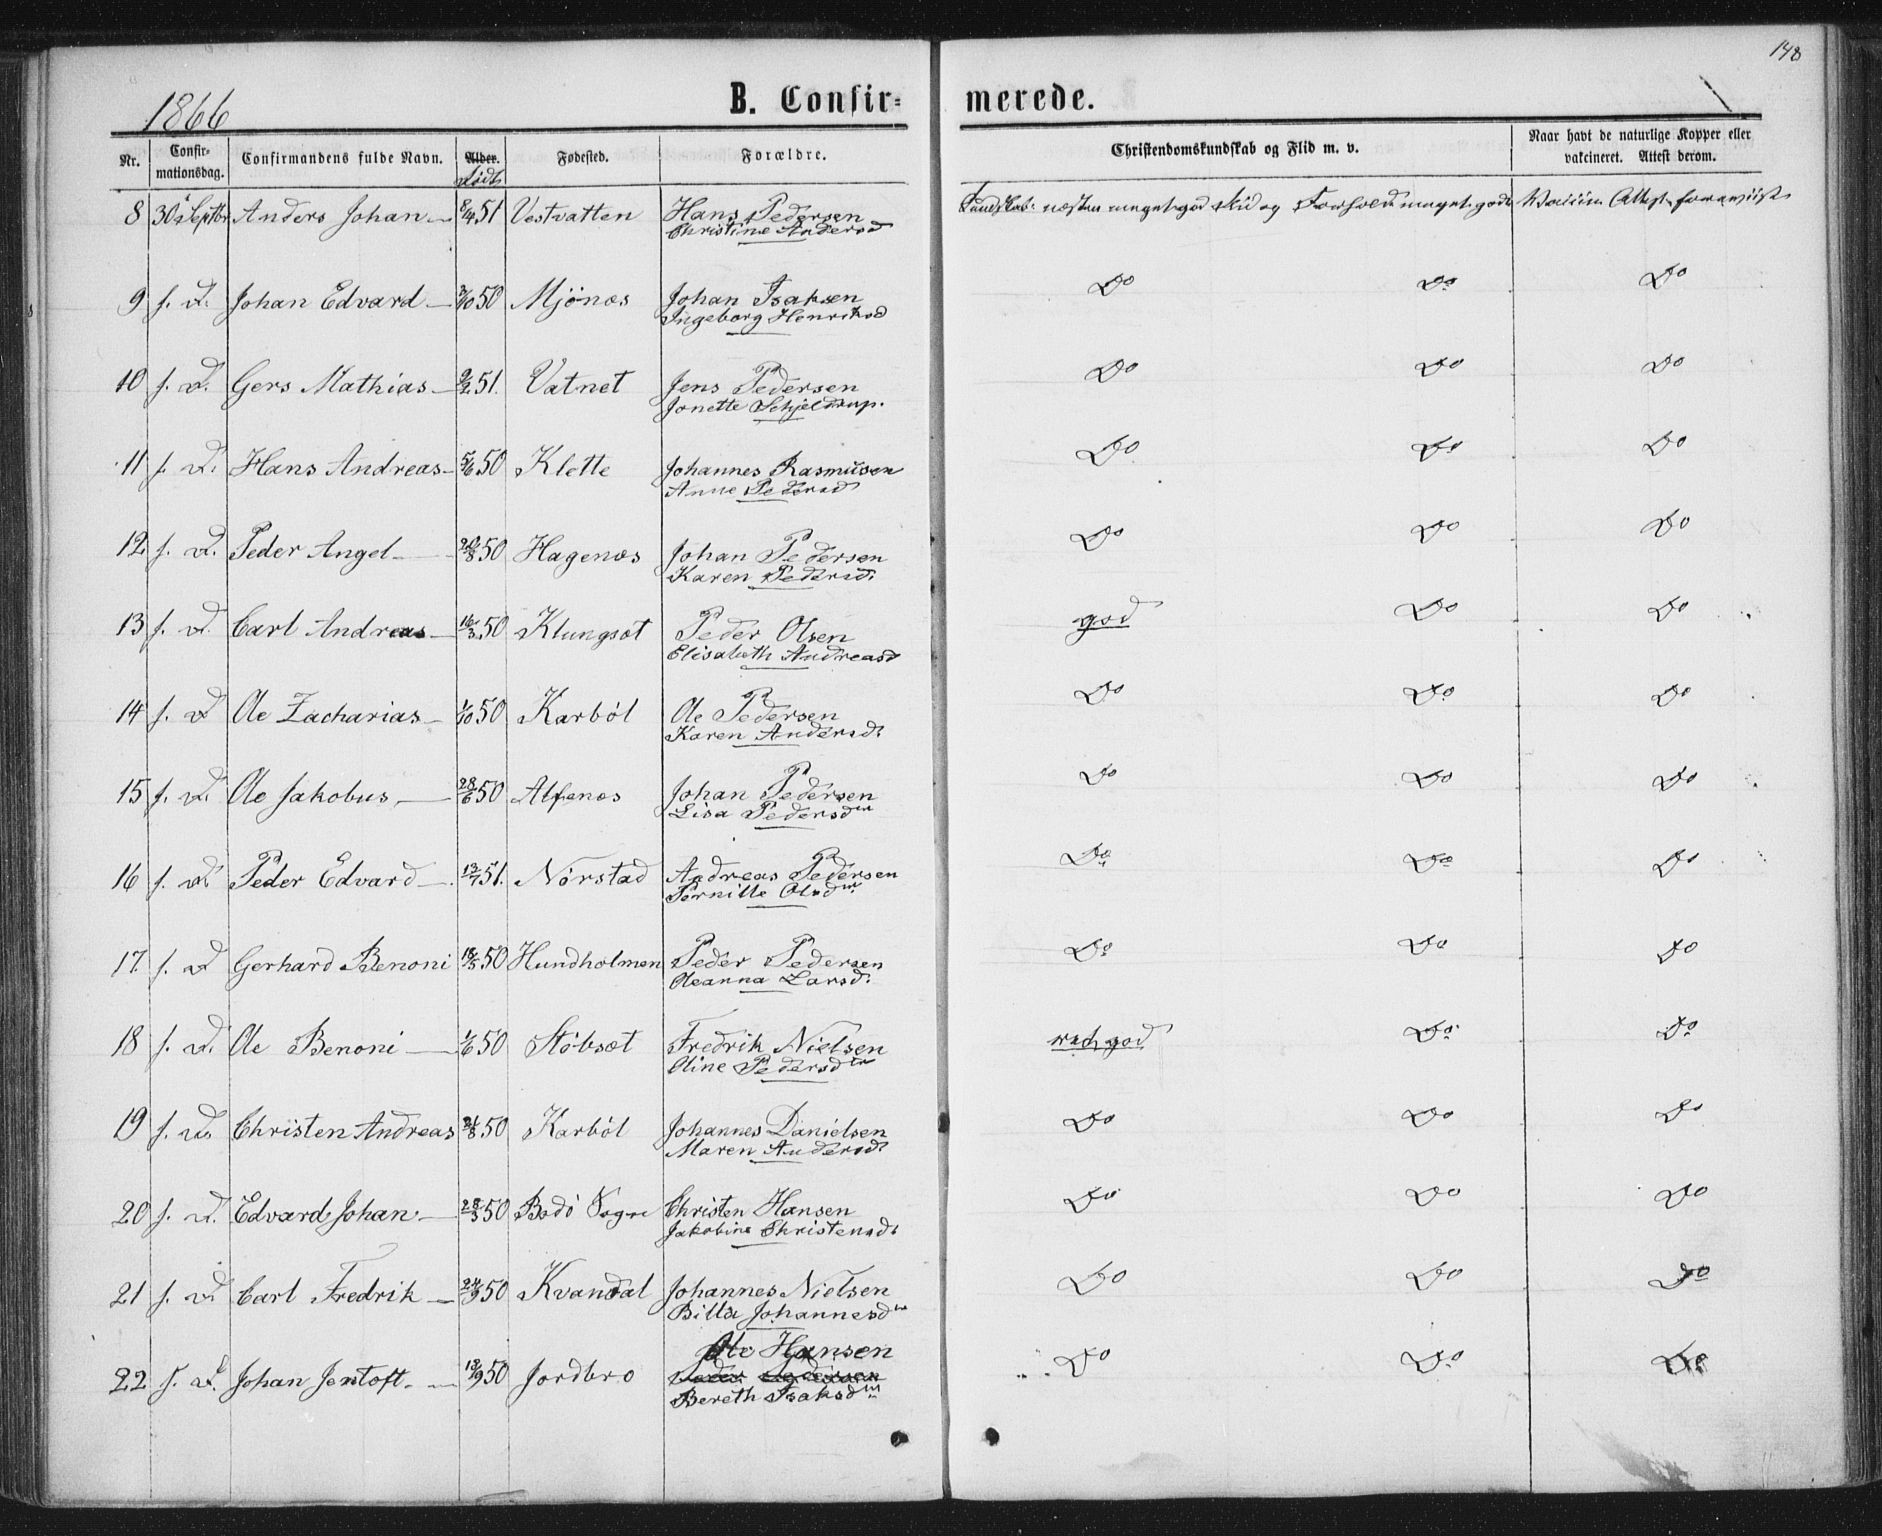 148
1866
B. Confir= merede.
Nr. Confir-mationsdag. Confirmandens fulde Navn. Alder. Født Fødested. Forældre. Christendomskundskab og Flid m. v. Naar havt de naturlige Kopper eller vakcineret. Attest derom.
8 30 Septbr Anders Johan 8/4 51 Vestvatten Hans Pedersen Kundskab næsten meget god Flid og Forhold meget godt Vaccin. Attest foreviist
Christine Andersd
9 s. D. Johan Edvard 50 Mjönæs Johan Isaksen Do Do Do
Ingeborg Henriksd
10 s. D. Gers Mathias 9/2 51. Vatnet Jens Pedersen Do Do Do
Jonette Schjeldrup.
11 s. D. Hans Andreas 50 Klette Johannes Rasmüsen Do Do Do
Anne Pedersd
12 s. D. Peder Angel 50 Hagenæs Johan Pedersen Do Do Do
Karen Pedersd.
13 s. D. Carl Andreas 16/3 50 Klungsæt Peder Olsen god Do Do
Elisabeth Andreasd
14 s. D Ole Zacharias 1/10 50 Karböl Ole Pedersen Do Do Do
Karen Andersd.
15 s. D. Ole Jakobus 28/6 50 Alfenæs Johan Pedersen Do Do Do
Lisa Pedersdtr
16 s. D. Peder Edvard 13/7 51. Nörstad Andreas Pedersen Do Do Do
Pernille Olsdtr
17. s. D Gerhard Benoni 18/5 50 Hundholmen Peder Pedersen Do Do Do
Oleanna Larsd.
18 s. D. Ole Benoni 1/6 50 Stöbsæt Fredrik Nielsen god Do Do
Oline Pedersdtr
19 s. D. Christen Andreas 50 Karböl Johannes Danielsen Do Do Do
Maren Andersd.
20 s. D. Edvard Johan 28/3 50 Bodö Sogn Christen Hansen Do Do Do
Jakobine Christensd.
21 s. D. Carl Fredrik 24/9 50 Kvandal Johannes Nielsen Do Do Do
Billa Johannesdtr
Ole Hansen
22 s. D. Johan Jentoft 50 Jordbro Peder Pedersen Do Do Do
Bereth Isaksdtr